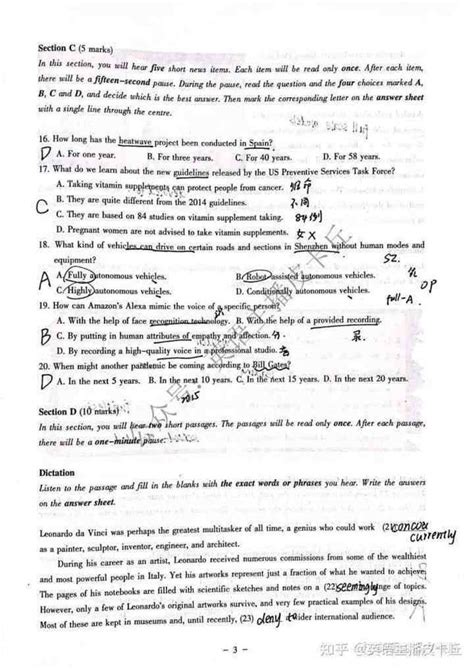 Section C (5 marks)
In this section, you will hear five short news items. Each item will be read only once. After each item,
there will be a fifteen-second pause. During the pause, read the question and the four choices marked A,
B, C and D, and decide which is the best answer. Then mark the corresponding letter on the answer sheet
with a single line through the centre.
16. How long has the heatwave project been conducted in Spain?
D A. For one year. B. For three years. C. For 40 years. D. For 58 years.
17. What do we learn about the new guidelines released by the US Preventive Services Task Force?
A. Taking vitamin supplements can protect people from cancer.
C B. They are quite different from the 2014 guidelines. 不同
C. They are based on 84 studies on vitamin supplement taking. 84
D. Pregnant women are not advised to take vitamin supplements. 女 X
18. What kind of vehicles can drive on certain roads and sections in Shenzhen without human modes and
equipment? SZ.
A A. Fully autonomous vehicles. B. Robot-assisted autonomous vehicles.
C. Highly autonomous vehicles. D. Conditionally autonomous vehicles. OP
full-A
19. How can Amazon's Alexa mimic the voice of a specific person?
A. With the help of face recognition technology. B. With the help of a provided recording.
B C. By putting in human attributes of empathy and affection.
D. By recording a high-quality voice in a professional studio.
20. When might another pandemic be coming according to Bill Gates?
D A. In the next 5 years. B. In the next 10 years. C. In the next 15 years. D. In the next 20 years.
Section D (10 marks)
In this section, you will hear two short passages. The passages will be read only once. After each passage,
there will be a one-minute pause.
Dictation
Listen to the passage and fill in the blanks with the exact words or phrases you hear. Write the answers
on the answer sheet.
Leonardo da Vinci was perhaps the greatest multitasker of all time, a genius who could work (21) concurrently
as a painter, sculptor, inventor, engineer, and architect.
During his career as an artist, Leonardo received numerous commissions from some of the wealthiest
and most powerful people in Italy. Yet his artworks represent just a fraction of what he wanted to achieve.
The pages of his notebooks are filled with scientific sketches and notes on a (22) seemingly range of topics.
However, only a few of Leonardo's original artworks survive, and very few practical examples of his designs.
Most of these are kept in museums and, until recently, (23) deny to wider international audience.
- 3 -
公众号：英语主播皮卡丘
知乎 @英语主播皮卡丘